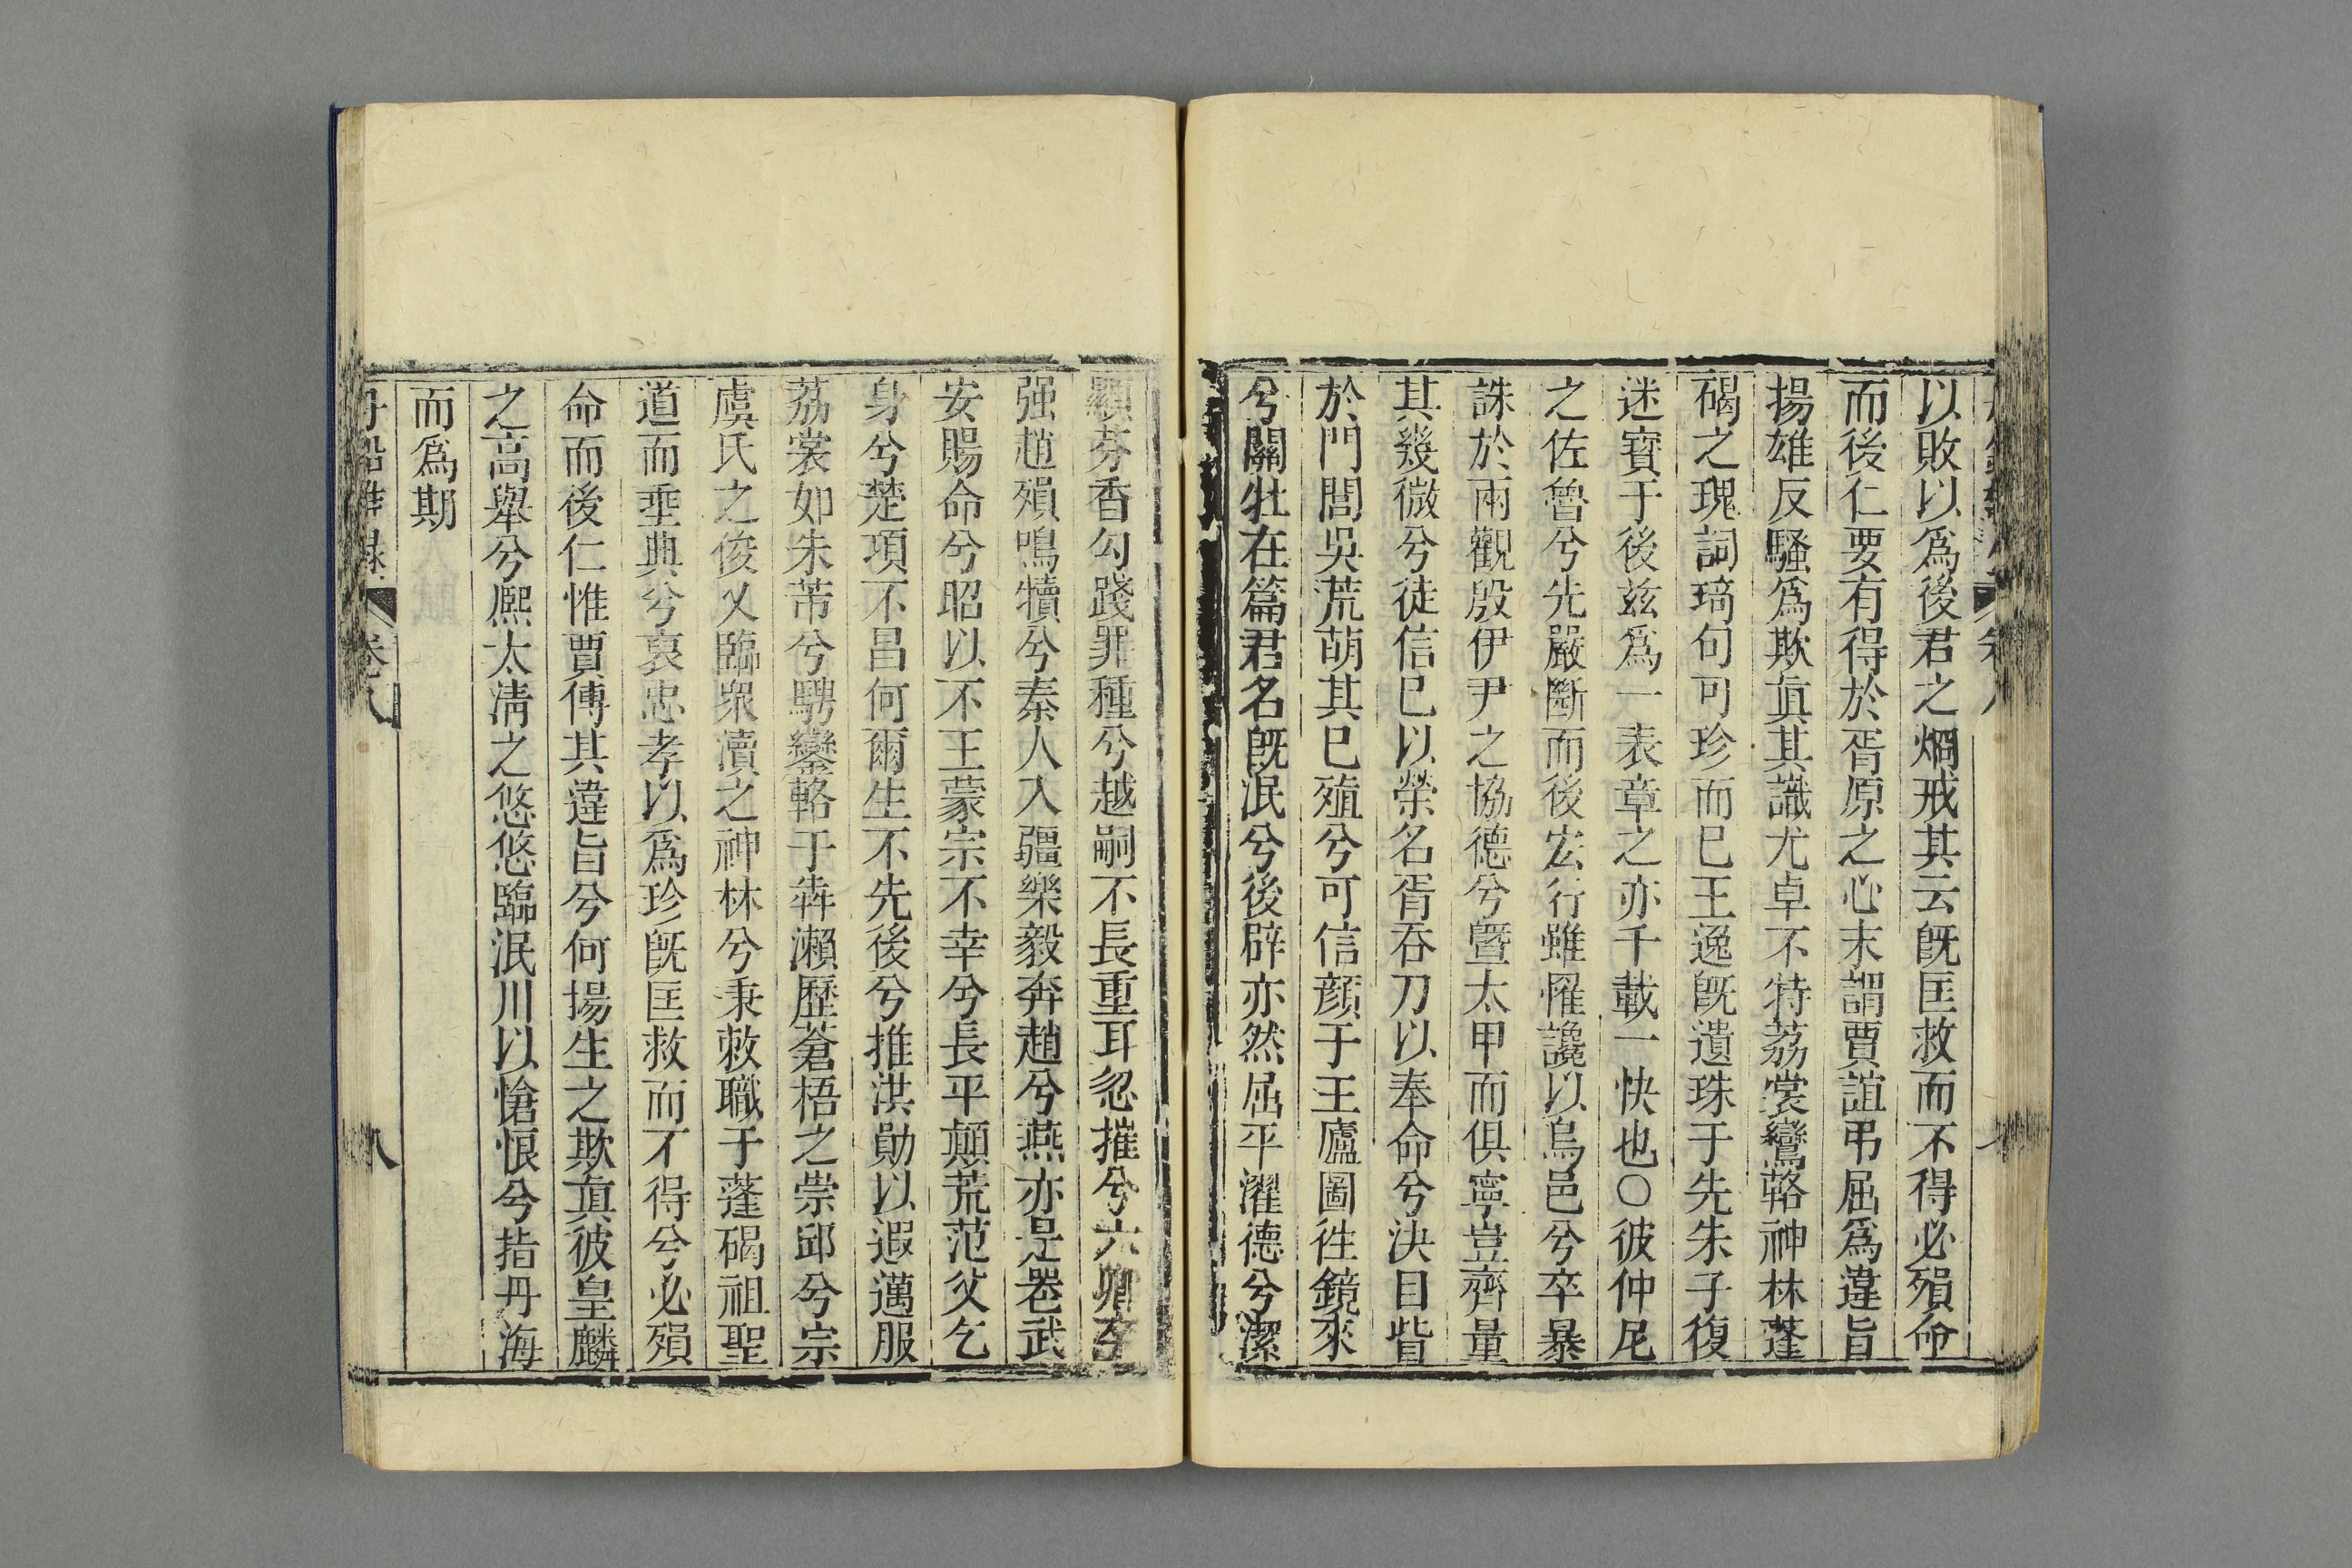 以敗以爲後君之炯戒其云旣匡救而不得必殞命
而後仁要有得於胥原之心末謂賈誼弔屈爲違旨
揚雄反騷爲欺眞其識尤卓不特荔裳鸞輅神林蓬
碣之瑰詞琦句可珍而巳王逸旣遺珠于先朱子復
迷寶于後兹爲一表章之亦千載一快也○彼仲尼
之佐魯兮先嚴斷而後宏行雖罹讒以烏邑兮卒暴
誅於兩觀殷伊尹之協德兮曁太甲而俱寧豈齊量
其幾微兮徒信巳以榮名胥吞刀以奉命兮決目眥
於門閭吳荒萌其巳殖兮可信顏于王廬圖徃鏡來
兮關牡在篇君名旣泯兮後辟亦然屈平濯德兮潔
顯芬香勾踐罪種兮越嗣不長重耳忽摧兮六卿
强趙殞鳴犢兮秦人入疆樂毅奔趙兮燕亦是喪武
安賜命兮昭以不王蒙宗不幸兮長平顚荒范父乞
身兮楚項不昌何爾生不先後兮推洪勛以遐邁服
荔裳如朱芾兮騁鸞輅于犇瀨歷蒼梧之崇邱兮宗
虞氏之俊乂臨衆瀆之神林兮秉敕職于蓬碣祖聖
道而垂典兮裦忠孝以爲珍旣匡救而不得兮必殞
命而後仁惟賈傅其違旨兮何揚生之欺眞彼皇麟
之高舉兮熈太淸之悠悠臨泯川以愴恨兮指丹海
而爲期
卷八
八